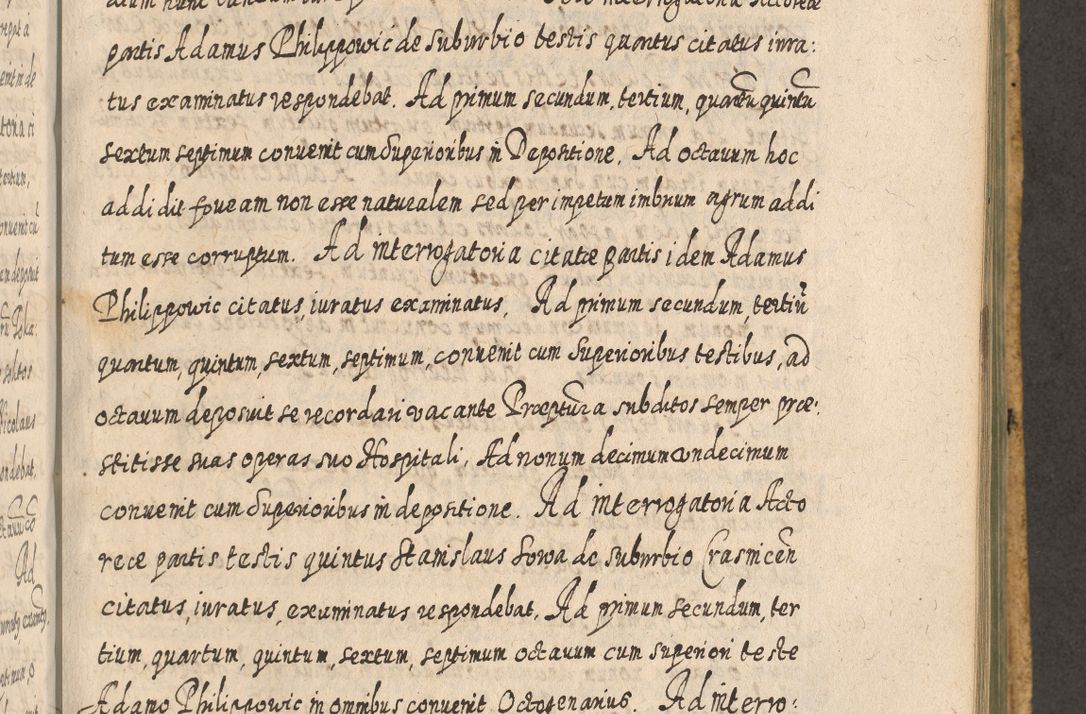 partis Adamus Philippowic de Suburbio testis quartus citatus iura:
tus examinatus respondebat. Ad primum secundum, tertium, quartu quintu
sextum septimum conuenit cum Superioribus in Depositione. Ad octauum hoc
addidit foueam non esse naturalem sed per impetum imbrium agrum addi
tum esse corruptum. Ad interrogatoria citatæ partis idem Adamus
Philippowic citatus, iuratus examinatus. Ad primum secundum, tertiu
quartum, quintum, sextum, septimum, conuenit cum Superioribus testibus, ad
octauum deposuit se recordari vacante Præptura subditos semper præ:
stitisse suas operas suo Hospitali, Ad nonum decimum undecimum
conuenit cum Superioribus in depositione. Ad interrogatoria Acto
reæ partis testis quintus Stanislaus Sowa de Suburbio Crasnicen
citatus, iuratus, exuminatus respondebat. Ad primum secundum, ter
tium, quartum, quintum, sextum, septimum octauum cum superiori teste
Adamo Philippowic in omnibus conuenit Octogenarius. Ad interro: